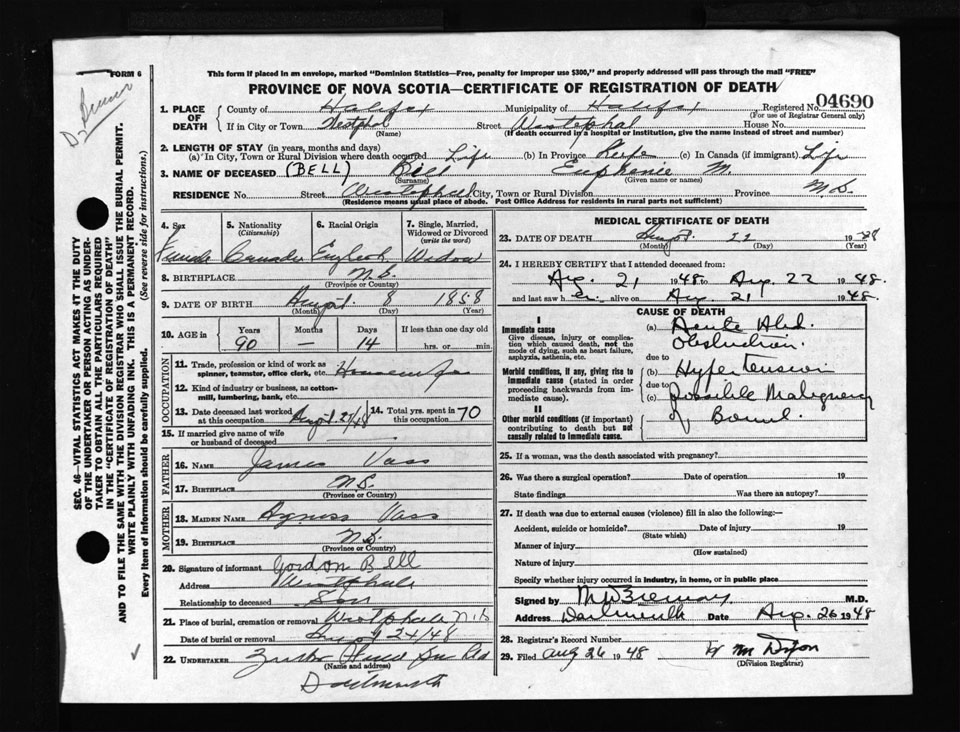 FORM 6
Dr
This form if placed in an envelope, marked "Dominion Statistics—Free, penalty for improper use $300," and properly addressed will pass through the mail "FREE"
PROVINCE OF NOVA SCOTIA—CERTIFICATE OF REGISTRATION OF DEATH
1. PLACE OF DEATH County of Halifax Municipality of Halifax Registered No. 04690
(For use of Registrar General only)
If in City or Town Westphal Street Westephal House No.
(Name) (If death occurred in a hospital or institution, give the name instead of street and number)
2. LENGTH OF STAY (in years, months and days)
(a) In City, Town or Rural Division where death occurred Life (b) In Province Life (c) In Canada (if immigrant) Life
3. NAME OF DECEASED (BELL) Bell Euphenie M.
(Surname) (Given name or names)
RESIDENCE No. Street Westephal City, Town or Rural Division Province N.S.
(Residence means usual place of abode. Post Office Address for residents in rural parts not sufficient)
4. Sex 5. Nationality (Citizenship) 6. Racial Origin 7. Single, Married, Widowed or Divorced (write the word)
Female Canada English Widow
8. BIRTHPLACE N.S.
(Province or Country)
9. DATE OF BIRTH August 8 1858
(Month) (Day) (Year)
10. AGE in Years Months Days If less than one day old
90 — 14 hrs. or min.
OCCUPATION
11. Trade, profession or kind of work as spinner, teamster, office clerk, etc.
12. Kind of industry or business, as cotton-mill, lumbering, bank, etc.
13. Date deceased last worked at this occupation 14. Total yrs. spent in this occupation 70
15. If married give name of wife or husband of deceased
FATHER
16. NAME James Vass
17. BIRTHPLACE N.S.
(Province or Country)
MOTHER
18. MAIDEN NAME Agness Vass
19. BIRTHPLACE N.S.
(Province or Country)
20. Signature of informant Gordon Bell
Address Westphale
Relationship to deceased Son
21. Place of burial, cremation or removal Westphale N.S.
Date of burial or removal August 24/48
22. UNDERTAKER
(Name and address)
Dartmouth
MEDICAL CERTIFICATE OF DEATH
23. DATE OF DEATH August 22 1948
(Month) (Day) (Year)
24. I HEREBY CERTIFY that I attended deceased from:
Aug. 21 1948 to Aug. 22 1948.
and last saw her alive on Aug. 21 1948.
CAUSE OF DEATH
I
Immediate cause
Give disease, injury or complication which caused death, not the mode of dying, such as heart failure, asphyxia, asthenia, etc.
(a) Acute Abd. Obstruction
due to
Morbid conditions, if any, giving rise to immediate cause (stated in order proceeding backwards from immediate cause).
(b) Hypertension
due to
(c) possible Malignancy of Bowel.
II
Other morbid conditions (if important) contributing to death but not causally related to immediate cause.
25. If a woman, was the death associated with pregnancy?
26. Was there a surgical operation? Date of operation 19
State findings Was there an autopsy?
27. If death was due to external causes (violence) fill in also the following:—
Accident, suicide or homicide? Date of injury 19
(State which)
Manner of injury
(How sustained)
Nature of injury
Specify whether injury occurred in industry, in home, or in public place
Signed by M.D.
Address Dartmouth Date Aug. 26 1948
28. Registrar's Record Number
29. Filed Aug 26 1948 Dixon
(Division Registrar)
SEC. 46—VITAL STATISTICS ACT MAKES IT THE DUTY
OF THE UNDERTAKER OR PERSON ACTING AS UNDER-
TAKER TO OBTAIN ALL THE PARTICULARS REQUIRED
IN THE "CERTIFICATE OF REGISTRATION OF DEATH"
AND TO FILE THE SAME WITH THE DIVISION REGISTRAR WHO SHALL ISSUE THE BURIAL PERMIT.
WRITE PLAINLY WITH UNFADING INK. THIS IS A PERMANENT RECORD.
Every item of information should be carefully supplied. (See reverse side for instructions.)